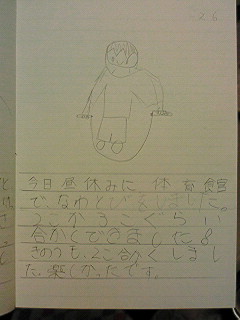 26
今日昼休みに、体育館
で、なわとびをしました。
2こか3こぐらい
合かくできました。
きのうも、2こ合かくしまし
た。楽しかったです。